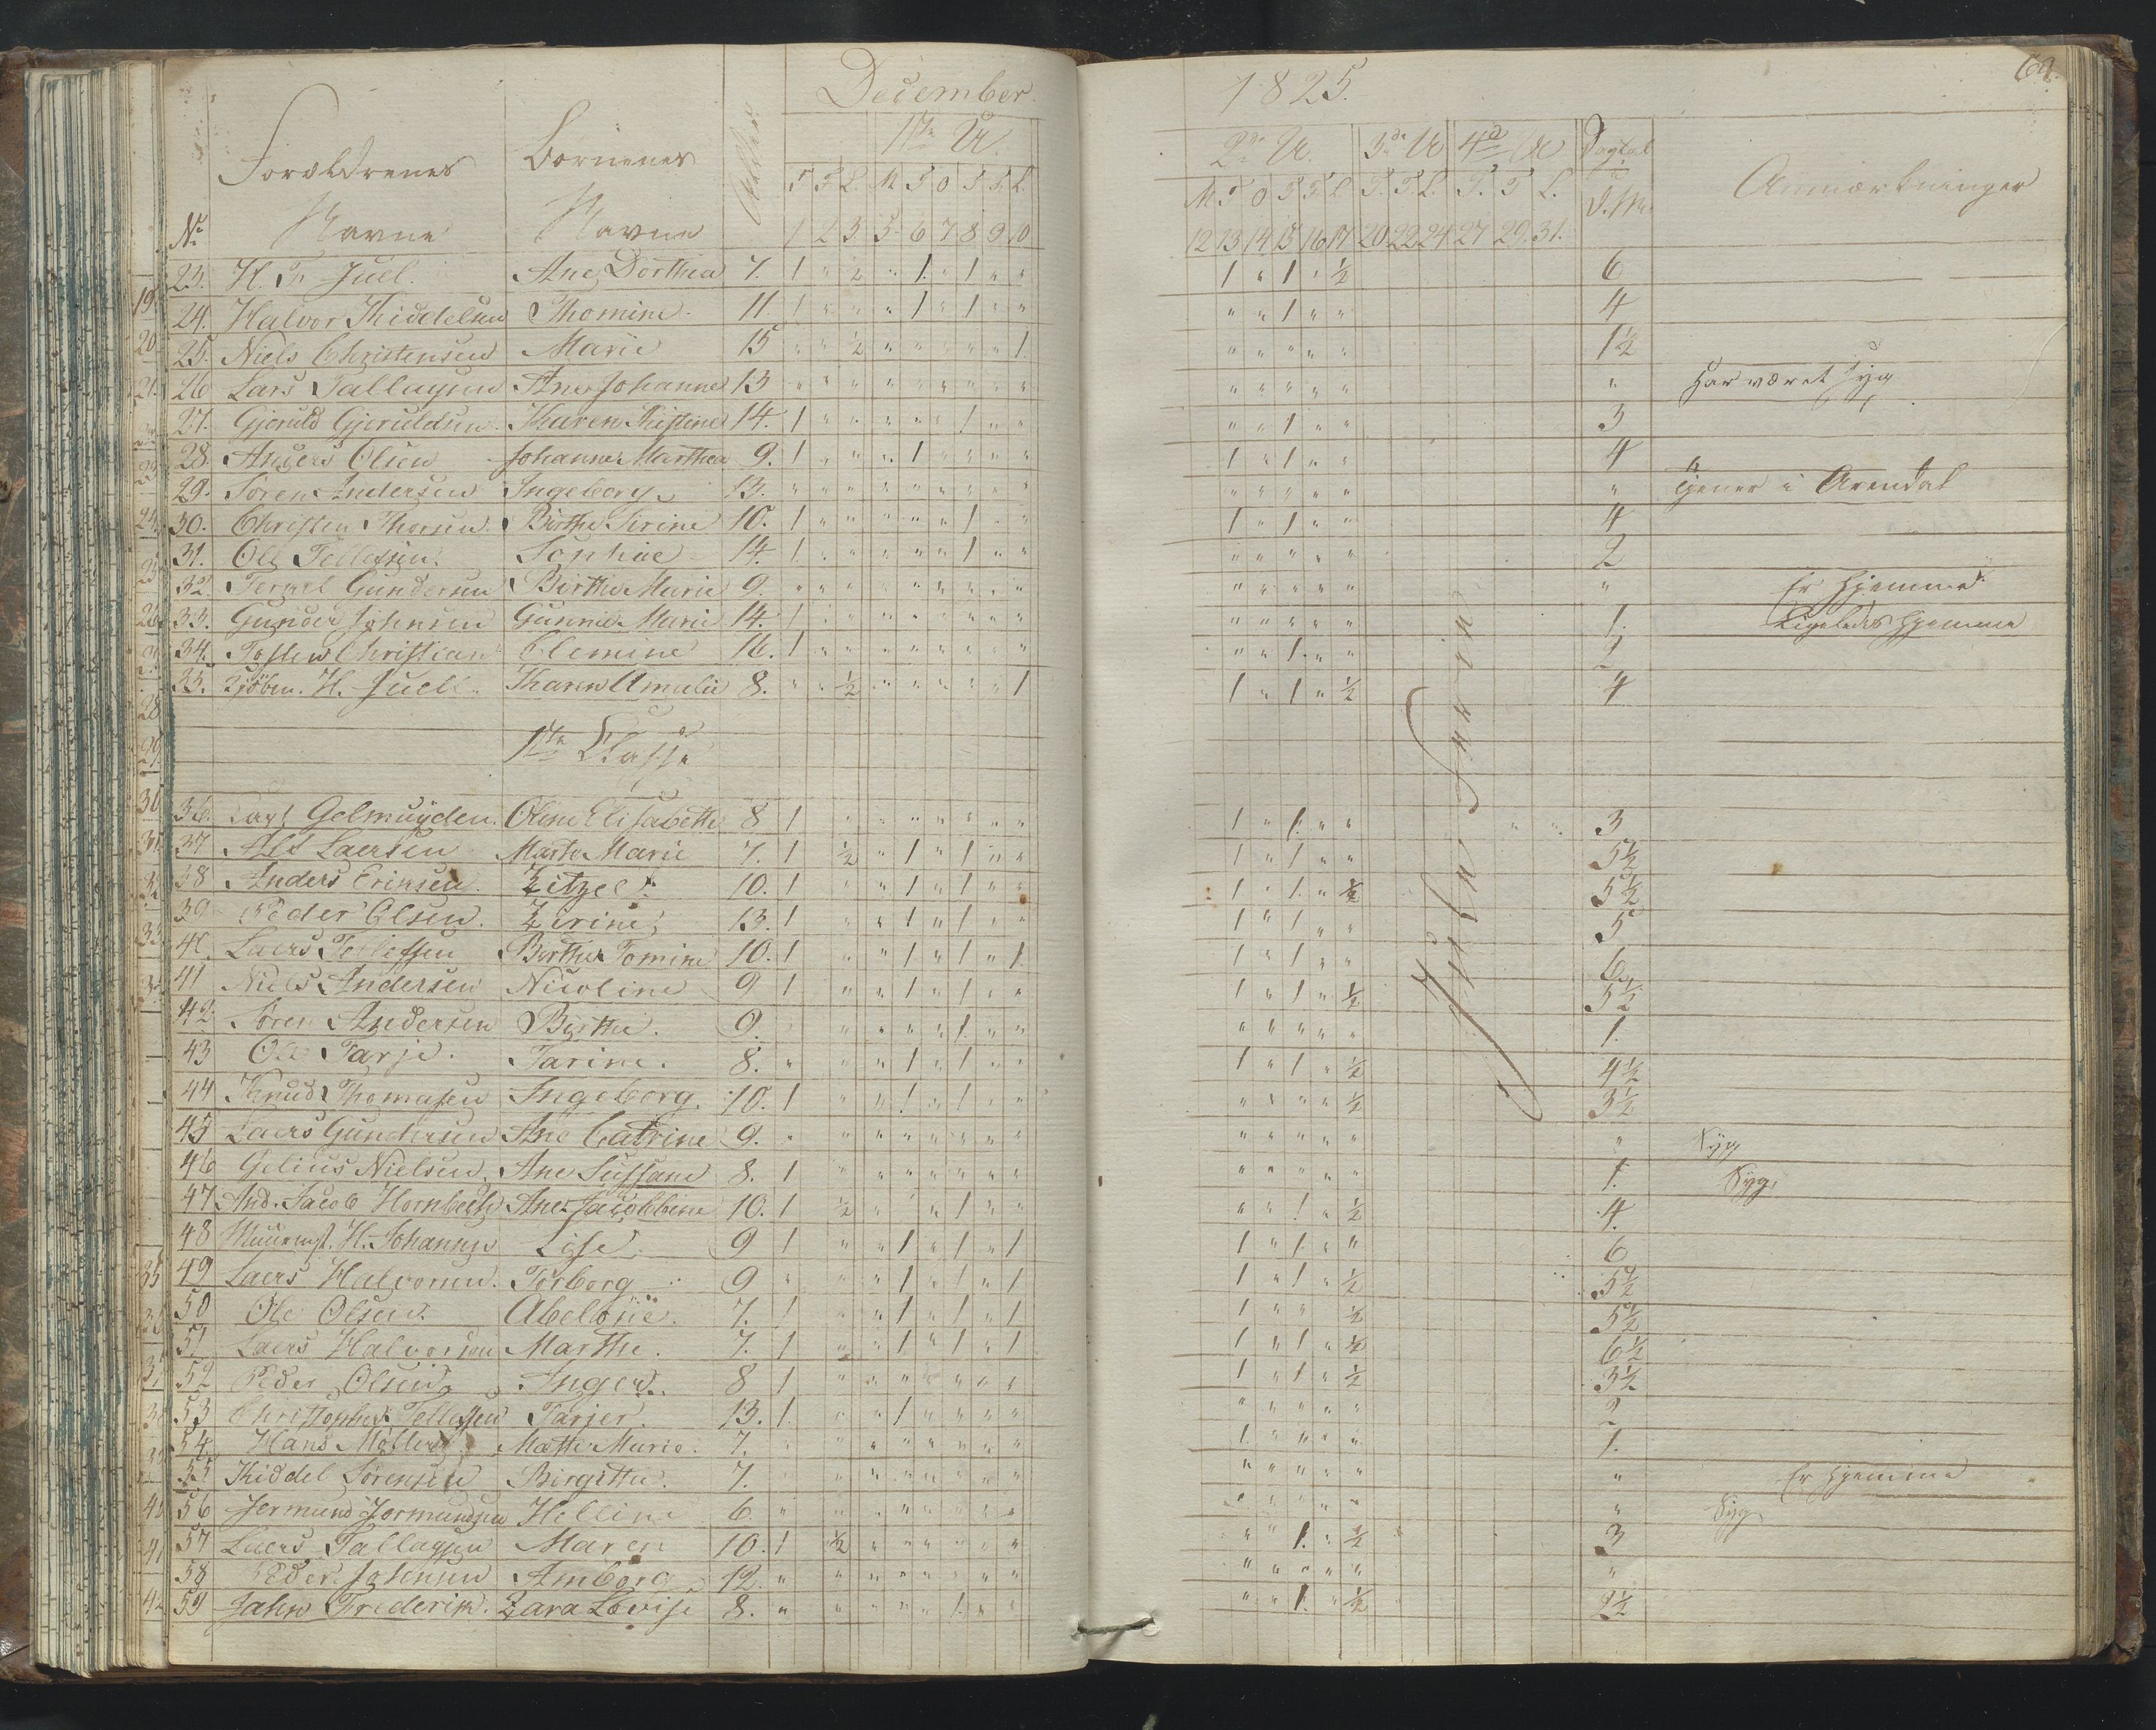 December 1825.
No Forældrenes Navne Børnenes Navne Alder 1ste U. 2den U. 3de U 4de U Dagtal Anmærkninger
T F L. M T O T F. L. M T O T F L T. T. L. T. T L.
1 2 3 5 6 7 8 9 10 12 13 14 15 16 17 20 22 24 27 29. 31.
23. H. T. Juel. Ane Dorthea 7. 1 " ½ " 1. " 1 " " 1 " 1 " ½ 6
24. Halvor Kiddelsen Thomine. 11. 1 " " " 1 " 1 " " " " 1 " " 4
25. Niels Christensen Marie 15 " " ½ " " " " " 1. " " " " " 1½
26 Lars Tallagsen Ane Johanne 13 " " " " " " " " " " " " " " " Har været syg
27. Gjeruld Gjeruldsen. Karen Kistine 14. 1 " " " " " 1 " " " " 1 " " 3
28. Anders Olsen Johanne Marthea 9. 1 " " " 1 " " " " 1 " 1 " " 4
29. Søren Andersen Ingeborg 13. " " " " " " " " " " " " " " " tjener i Arendal
30. Christen Thorsen Birthe Sirine 10. 1 " " " " " 1 " " 1 " 1 " " 4
31. Ole Tellefsen. Sophie 14. 1 " " " " " 1 " " " " " " " 2
32. Terkel Gundersen Birthe Marie 9. " " " " " " " " " " " " " " " Er Hjemme
33. Gunder Johnsen Gunnil Marie 14. 1 " " " " " " " " " " " " " 1. Ligeledes Hjemme
34. Tosten Christian Clemine 16. 1 " " " " " " " " " " 1. " " 2
35. H. Juell. Karen Amalie 8. " " ½ " " " " " 1 1 " 1 " ½ 4
1ste Classe
36. Gelmuÿden. Oline Elisabeth 8 1 " " " " " " " 1 " 1. " " 3
37 Als Laersen Marthe Marie 7. 1 ½ " 1 " 1 " " 1 " 1 " " 5½
38 Anders Eriksen. Zitzel 10. 1 " " 1 " 1 " " 1 " 1. " ½ 5½
39 Peder Olsen. Zirine 13. 1 " " 1 " 1 " " 1 " 1 " " 5
40. Laers Tellefsen Birthe Tomine 10. 1 " " 1 " 1 " 1. 1 " 1 " " 6
41 Niels Andersen Nicoline 9 1 " " 1 " 1 " " 1 " 1 " ½ 5½
42 Søren Andersen Birthe. 9. " " " " 1. " " " " " " " 1.
43 Ole Tarje. Tarine. 8. " " " 1 " 1 " " 1 " 1 " ½ 4½
44 Knud Thomasen Ingeborg. 10. 1 " " 1 " 1 " " " " " " ½ 3½
45 Laers Gundersen Ane Catrine 9. " " " " " " " " " " " " " " Syg
46 Gelius Nielsen. Ane Sussane 8. 1 " " " " " " " " " " " " 1. Syg
47 And. Jacob Hornbech Ane Jacobbine 10. 1 ½ " " " 1 " " " " 1 " ½ 4.
48 H. Johannes Lise 9 1 " " 1 " 1 " 1 1 " 1. " " 6
49 Laers Halvorsen. Torborg 9 " " " 1 " 1 " 1 1 " 1. " ½ 5½
50 Ole Olsen. Abelone. 7. 1 " " 1 " 1 " 1 1 " " " ½ 5½
51 Laers Halvorsen Marthe. 7. 1 " " 1 " 1 " 1 1 " 1 " ½ 6½
52 Peder Olsen Inger. 8 1 " " " " " " " 1 " 1 " ½ 3½
53 Christopher Tellefsen Tarjer. 13. 1. " " 1 " " " " " " " " " 2
54. Hans Møller Mætte Marie. 7. " " " " " " " " 1. " " " " 1.
55 Kiddel Sørensen Birgitte. 7. " " " " " " " " " " " " " " Er Hjemme
56 Jermund Jermundsen Helline 6 " " " " " " " " " " " " " " Syg
57 Laers Tallagsen Maren 10. 1 ½ " " " " " " " " 1. " ½ 3
58 Peder Johnsen Amborg 12. " " " " " " " " " " " " " "
59 Jahn Frederik. Zara Lovise 8. " " " " " 1. " " " " 1. " ½ 2½